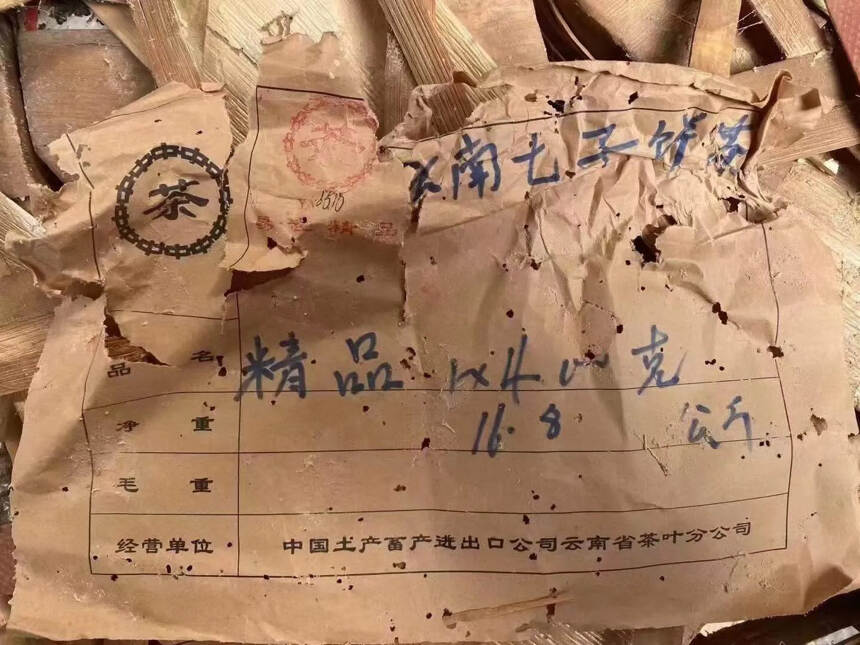 茶
云南七子饼茶
精品
品 名 精 品 1×400克
净 重 16.8 公斤
毛 重
经营单位 中国土产畜产进出口公司云南省茶叶分公司